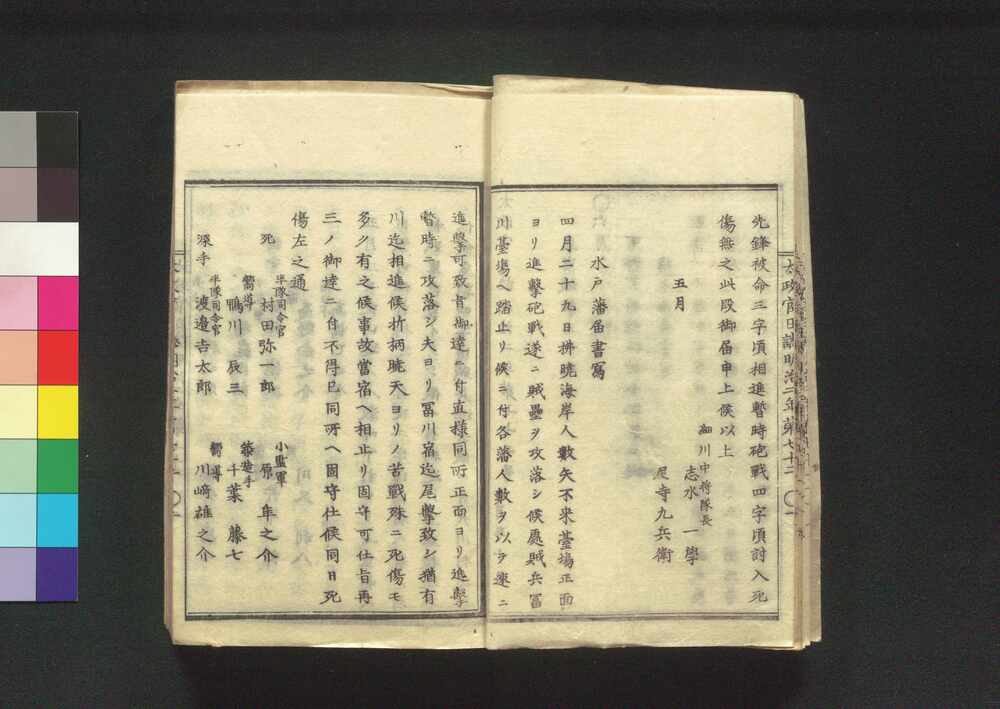 先鋒被命三字頃相進暫時砲戰四字頃討入死
傷無之此段御届申上候以上
細川中将隊長
五月
志水一學
尼寺九兵衛
水戸藩届書寫
四月二十九日拂曉海岸人數矢不来臺場正面
ヨリ進擊砲戰遂ニ賊壘ヲ攻落シ候處賊兵冨
川臺塲ヘ踏止リ候ニ付各藩人數ヲ以ヲ速ニ
進擊可致旨御達ニ付直様同所正面ヨリ進擊
暫時ニ攻落シ夫ヨリ冨川宿迄尾擊致シ猶有
川迄相進候折柄曉天ヨリノ苦戰殊ニ死傷モ
多ク有之候事故當宿ヘ相止リ固守可仕旨再
三ノ御達ニ付不得已同所ヘ固守仕候同日死
傷左之通
死
半隊司令官
村田弥一郎
小監軍
原隼之介
嚮導
鴨川辰三
築造手
千葉藤七
深手
半隊司令官
渡邉吉太郎
嚮導
川﨑雄之介
太政官日誌明治二年第七十二